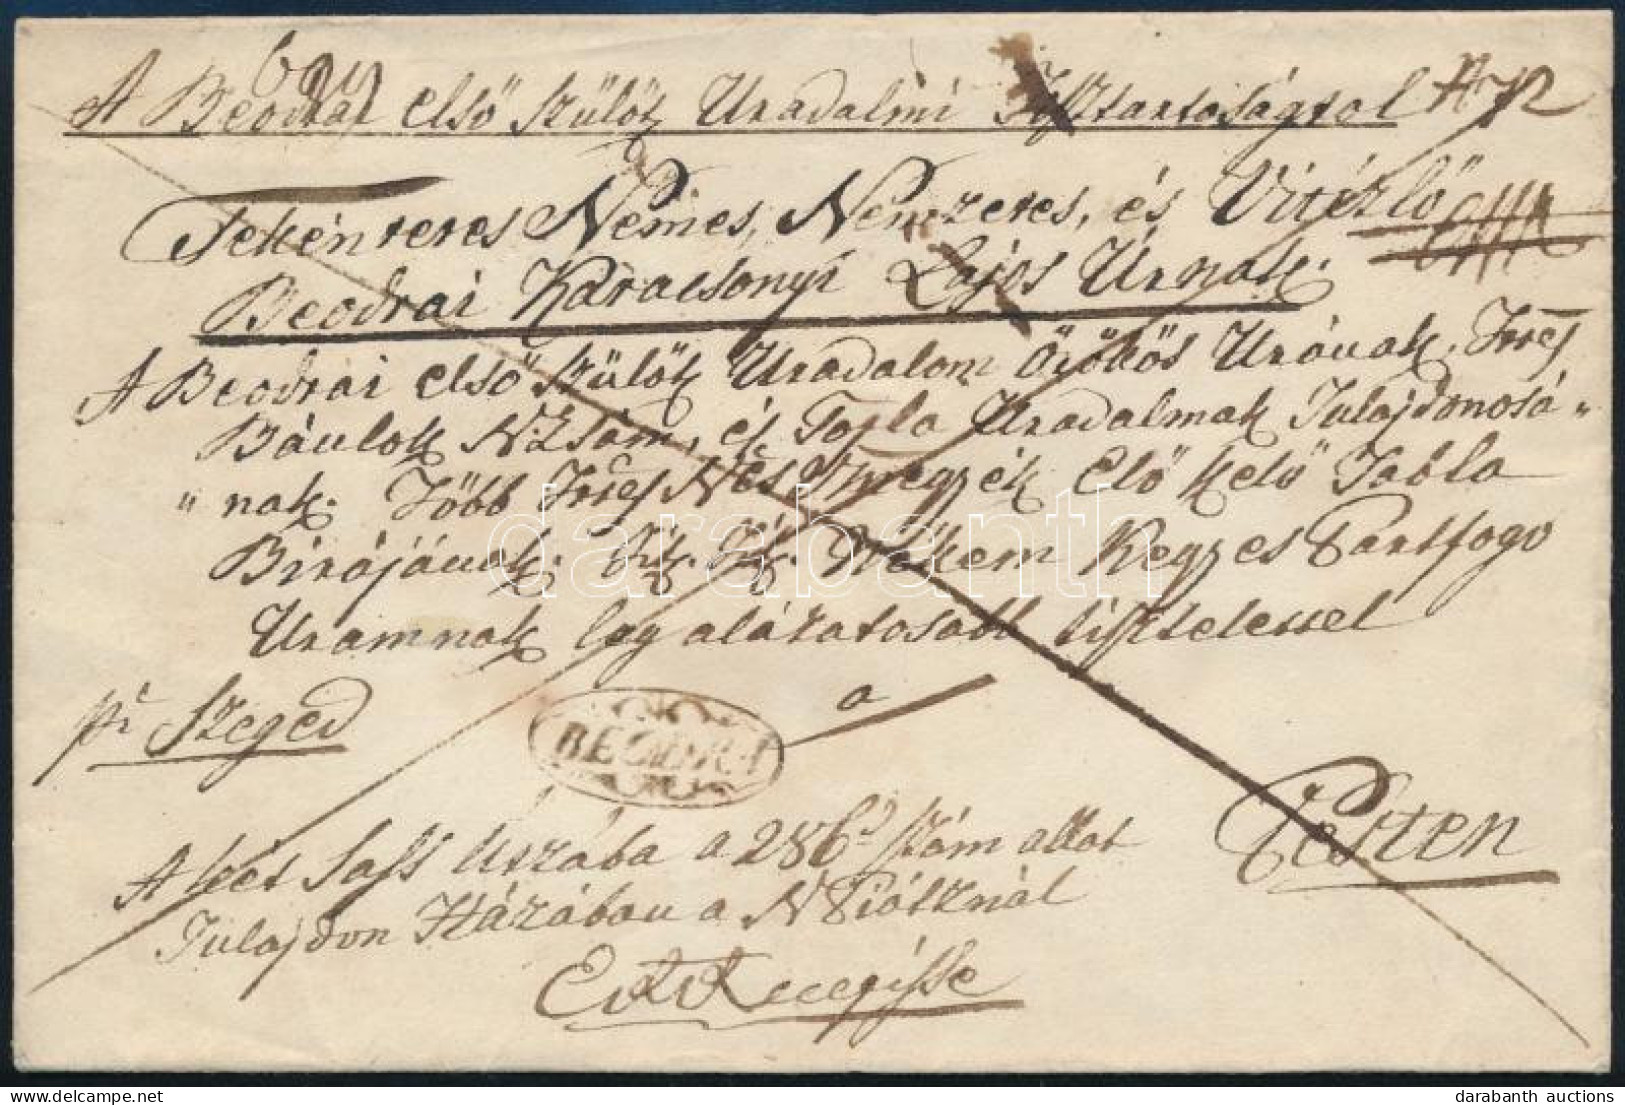 A Beodrai első szülött Uradalmi Tisztartoságtol
Tekénteres Nemes, Nemzeres, és Vitézlő
Beodrai Karacsonyi Lajos Úrnak.
A Beodrai első szülött Uradalom Örökös Urának, Ttes
és Topla Uradalmak Tulajdonosá„
„nak. Több Ttes Nes Vmegyék Elő kelő Tabla
Birájának. Nékem Kegyes Partfogo
Uramnak leg alázatosabb tisztelettel
a
pr Szeged
BEODRA
Pesten
A két Sass Uszába a 286d szám allat
Tulajdon Házában a
darabanth
darabanth auctions